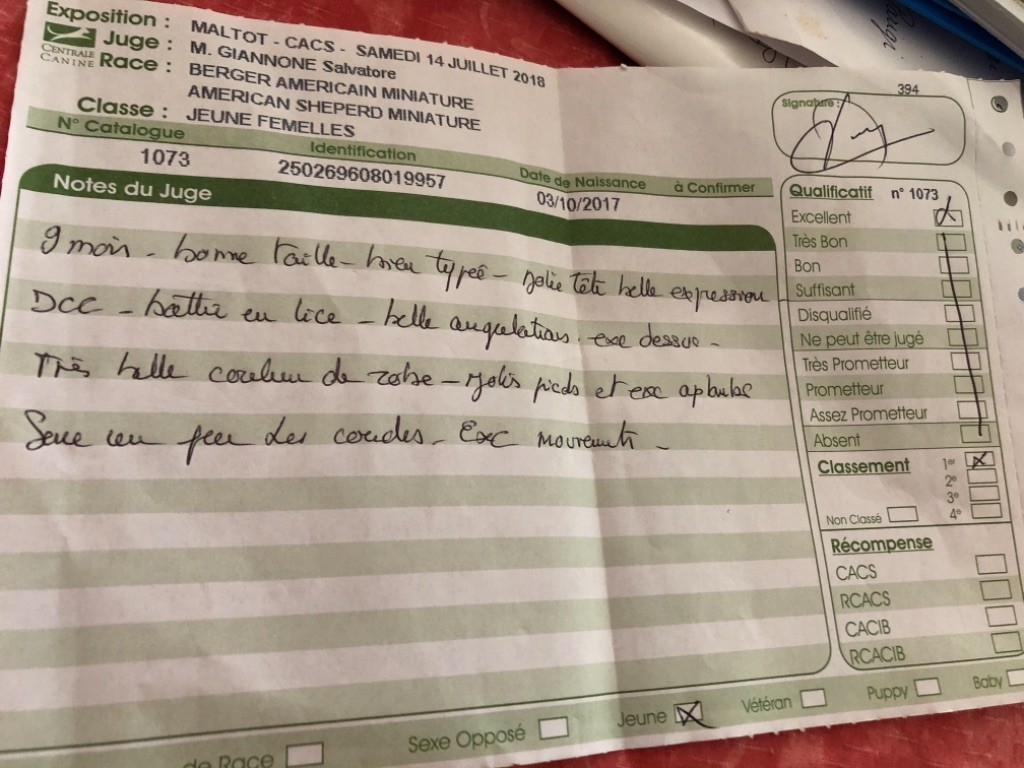 Exposition : MALTOT - CACS - SAMEDI 14 JUILLET 2018
Juge : M. GIANNONE Salvatore
CENTRALE CANINE
Race : BERGER AMERICAIN MINIATURE
AMERICAN SHEPERD MINIATURE
Classe : JEUNE FEMELLES
N° Catalogue Identification Date de Naissance à Confirmer
1073 250269608019957 03/10/2017
394
Signature :
Notes du Juge
9 mois - bonne taille - bien typée - Jolie tête belle expression
DCC - battie en lice - belle angulations. exc dessus -
Très belle couleur de robe - Jolis pieds et exc aplombs
Serre un peu les coudes - Exc mouvements -
Qualificatif n° 1073
Excellent
Très Bon
Bon
Suffisant
Disqualifié
Ne peut être jugé
Très Prometteur
Prometteur
Assez Prometteur
Absent
Classement 1er
2e
3e
Non Classé 4e
Récompense
CACS
RCACS
CACIB
RCACIB
de Race Sexe Opposé Jeune Vétéran Puppy Baby